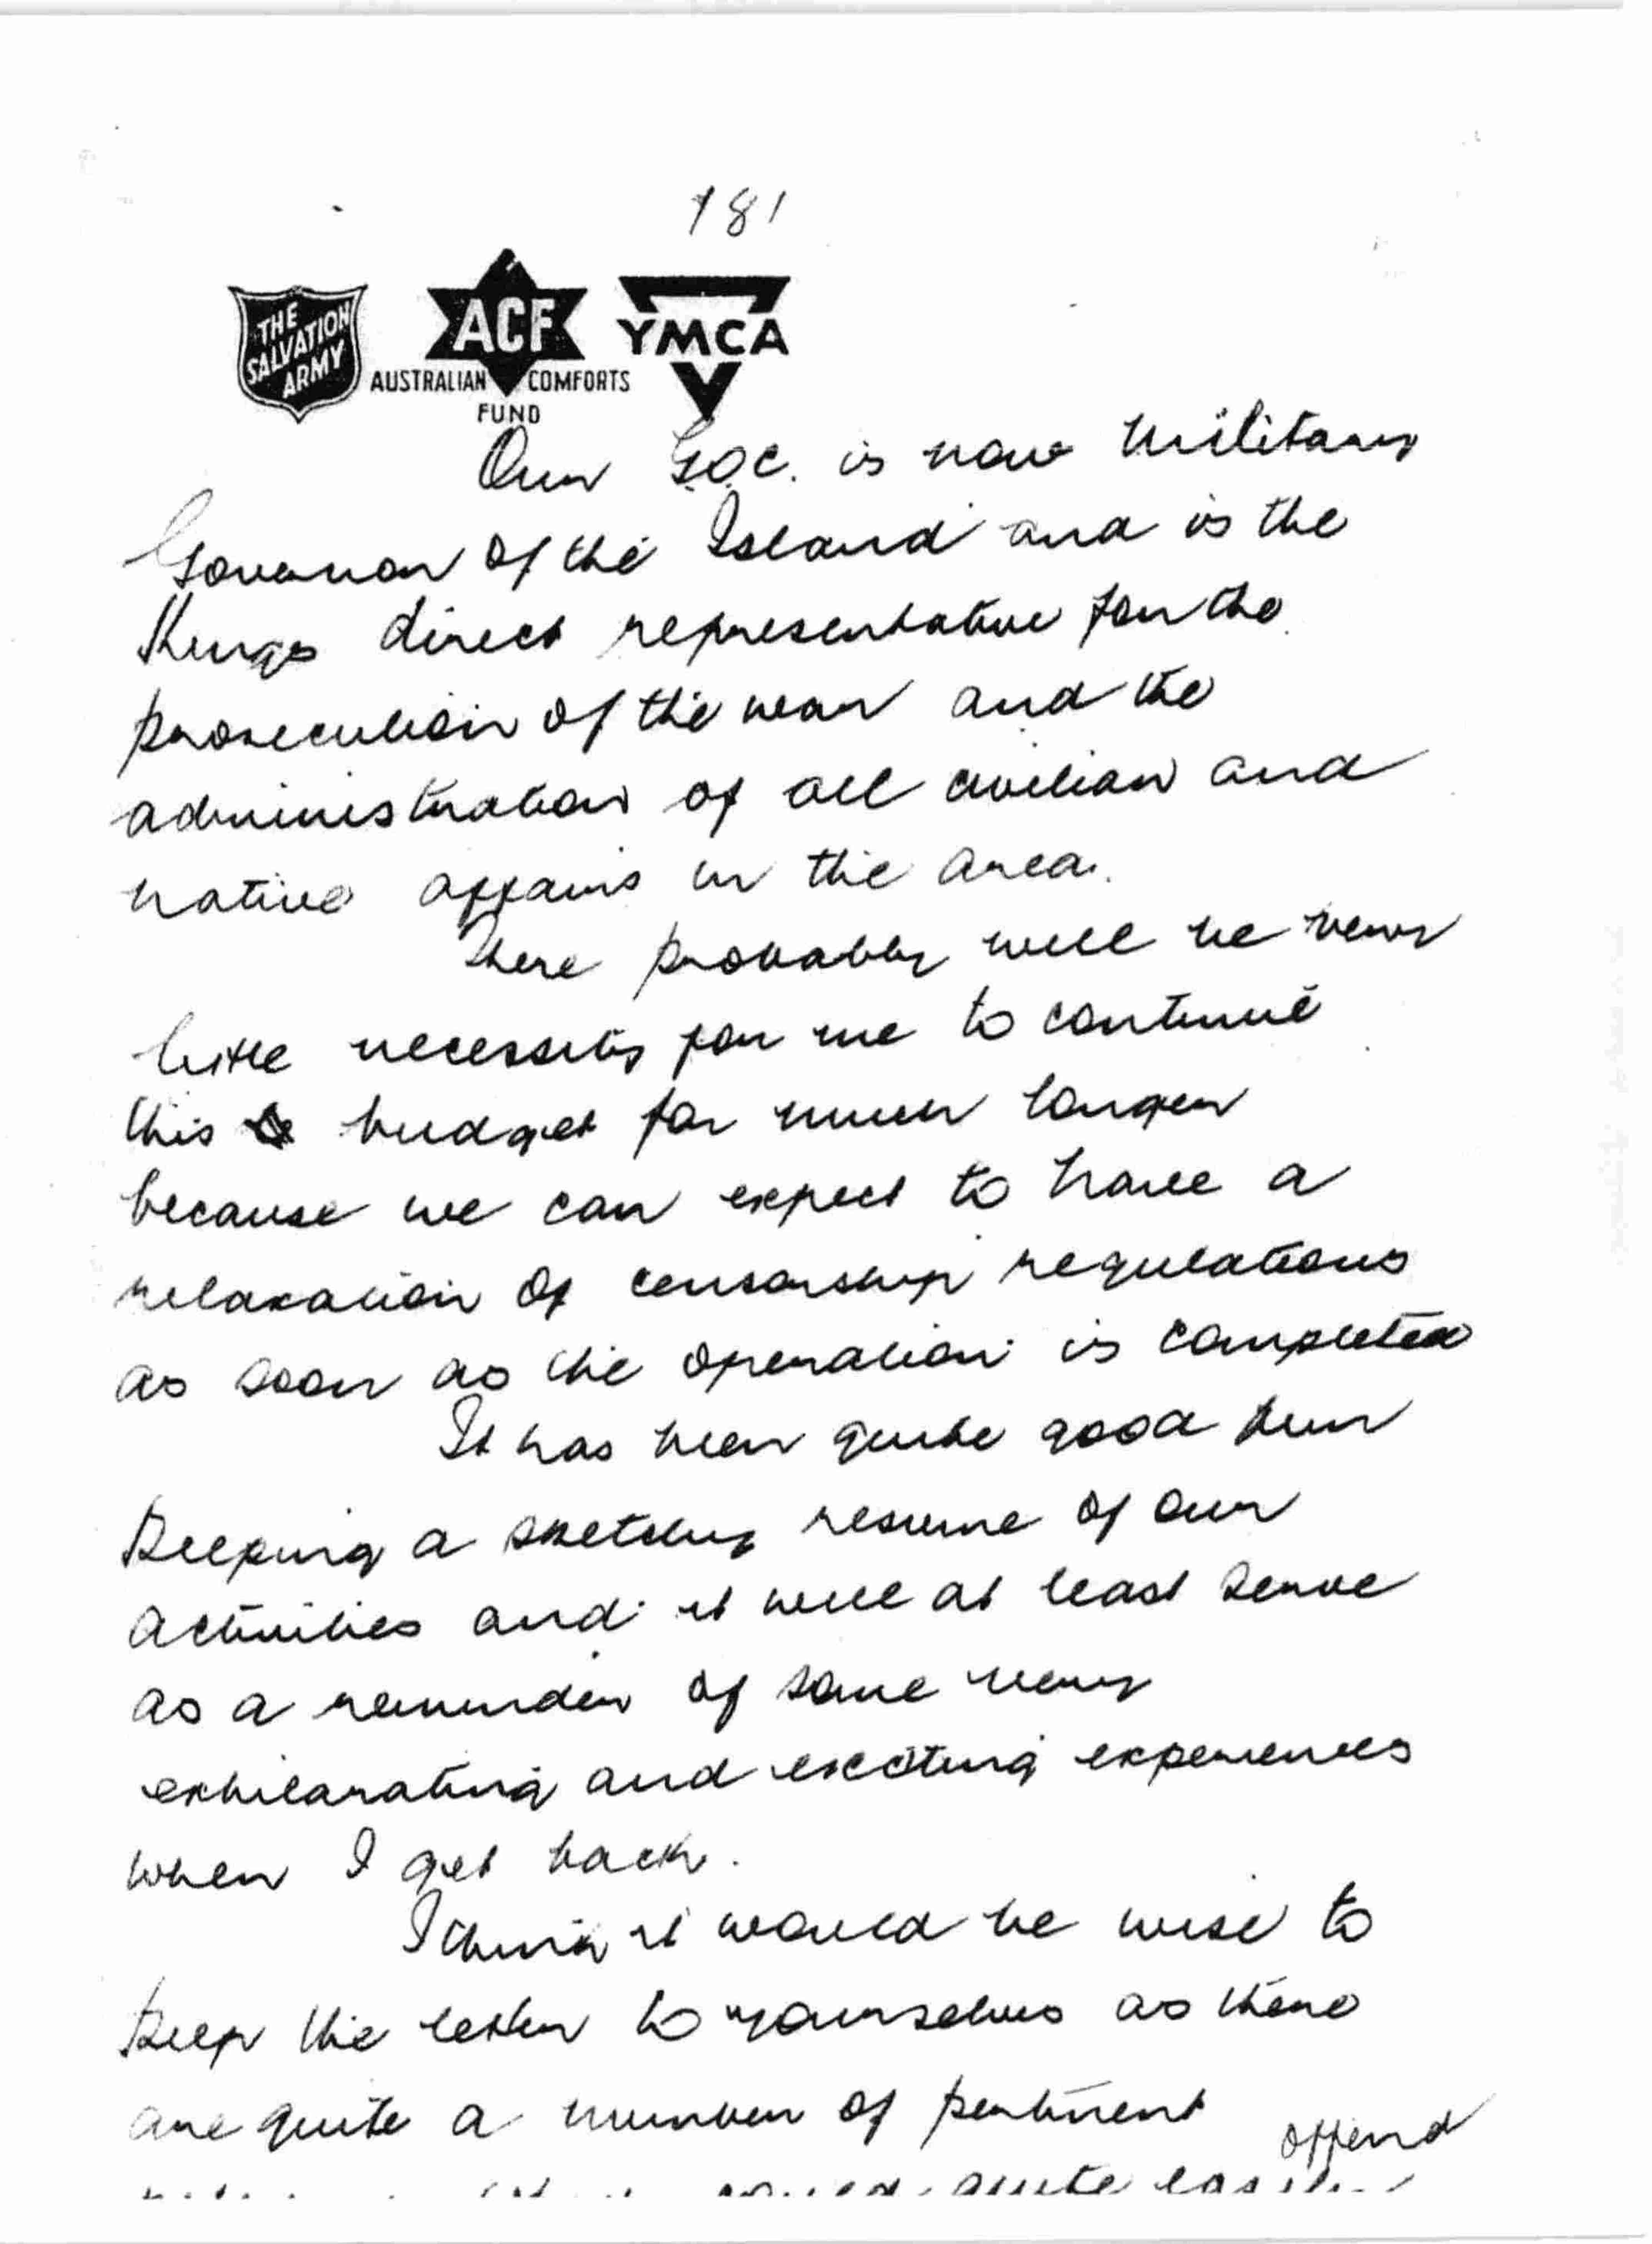 181
THE
SALVATION
ARMY
ACF
AUSTRALIAN COMFORTS
FUND
YMCA
Our G.O.C. is now Military
Governor of the Island and is the
Kings direct representative for the
prosecution of the war and the
administration of all civilian and
native affairs in the area.
There probably will be very
little necessity for me to continue
this budget for much longer
because we can expect to have a
relaxation of censorship regulations
as soon as the operation is completed
It has been quite good fun
keeping a sketchy resume of our
activities and it will at least serve
as a reminder of some very
exhilarating and exciting experiences
when I get back.
I think it would be wise to
keep the letter to yourselves as there
are quite a number of pertinent
offend
quite easily